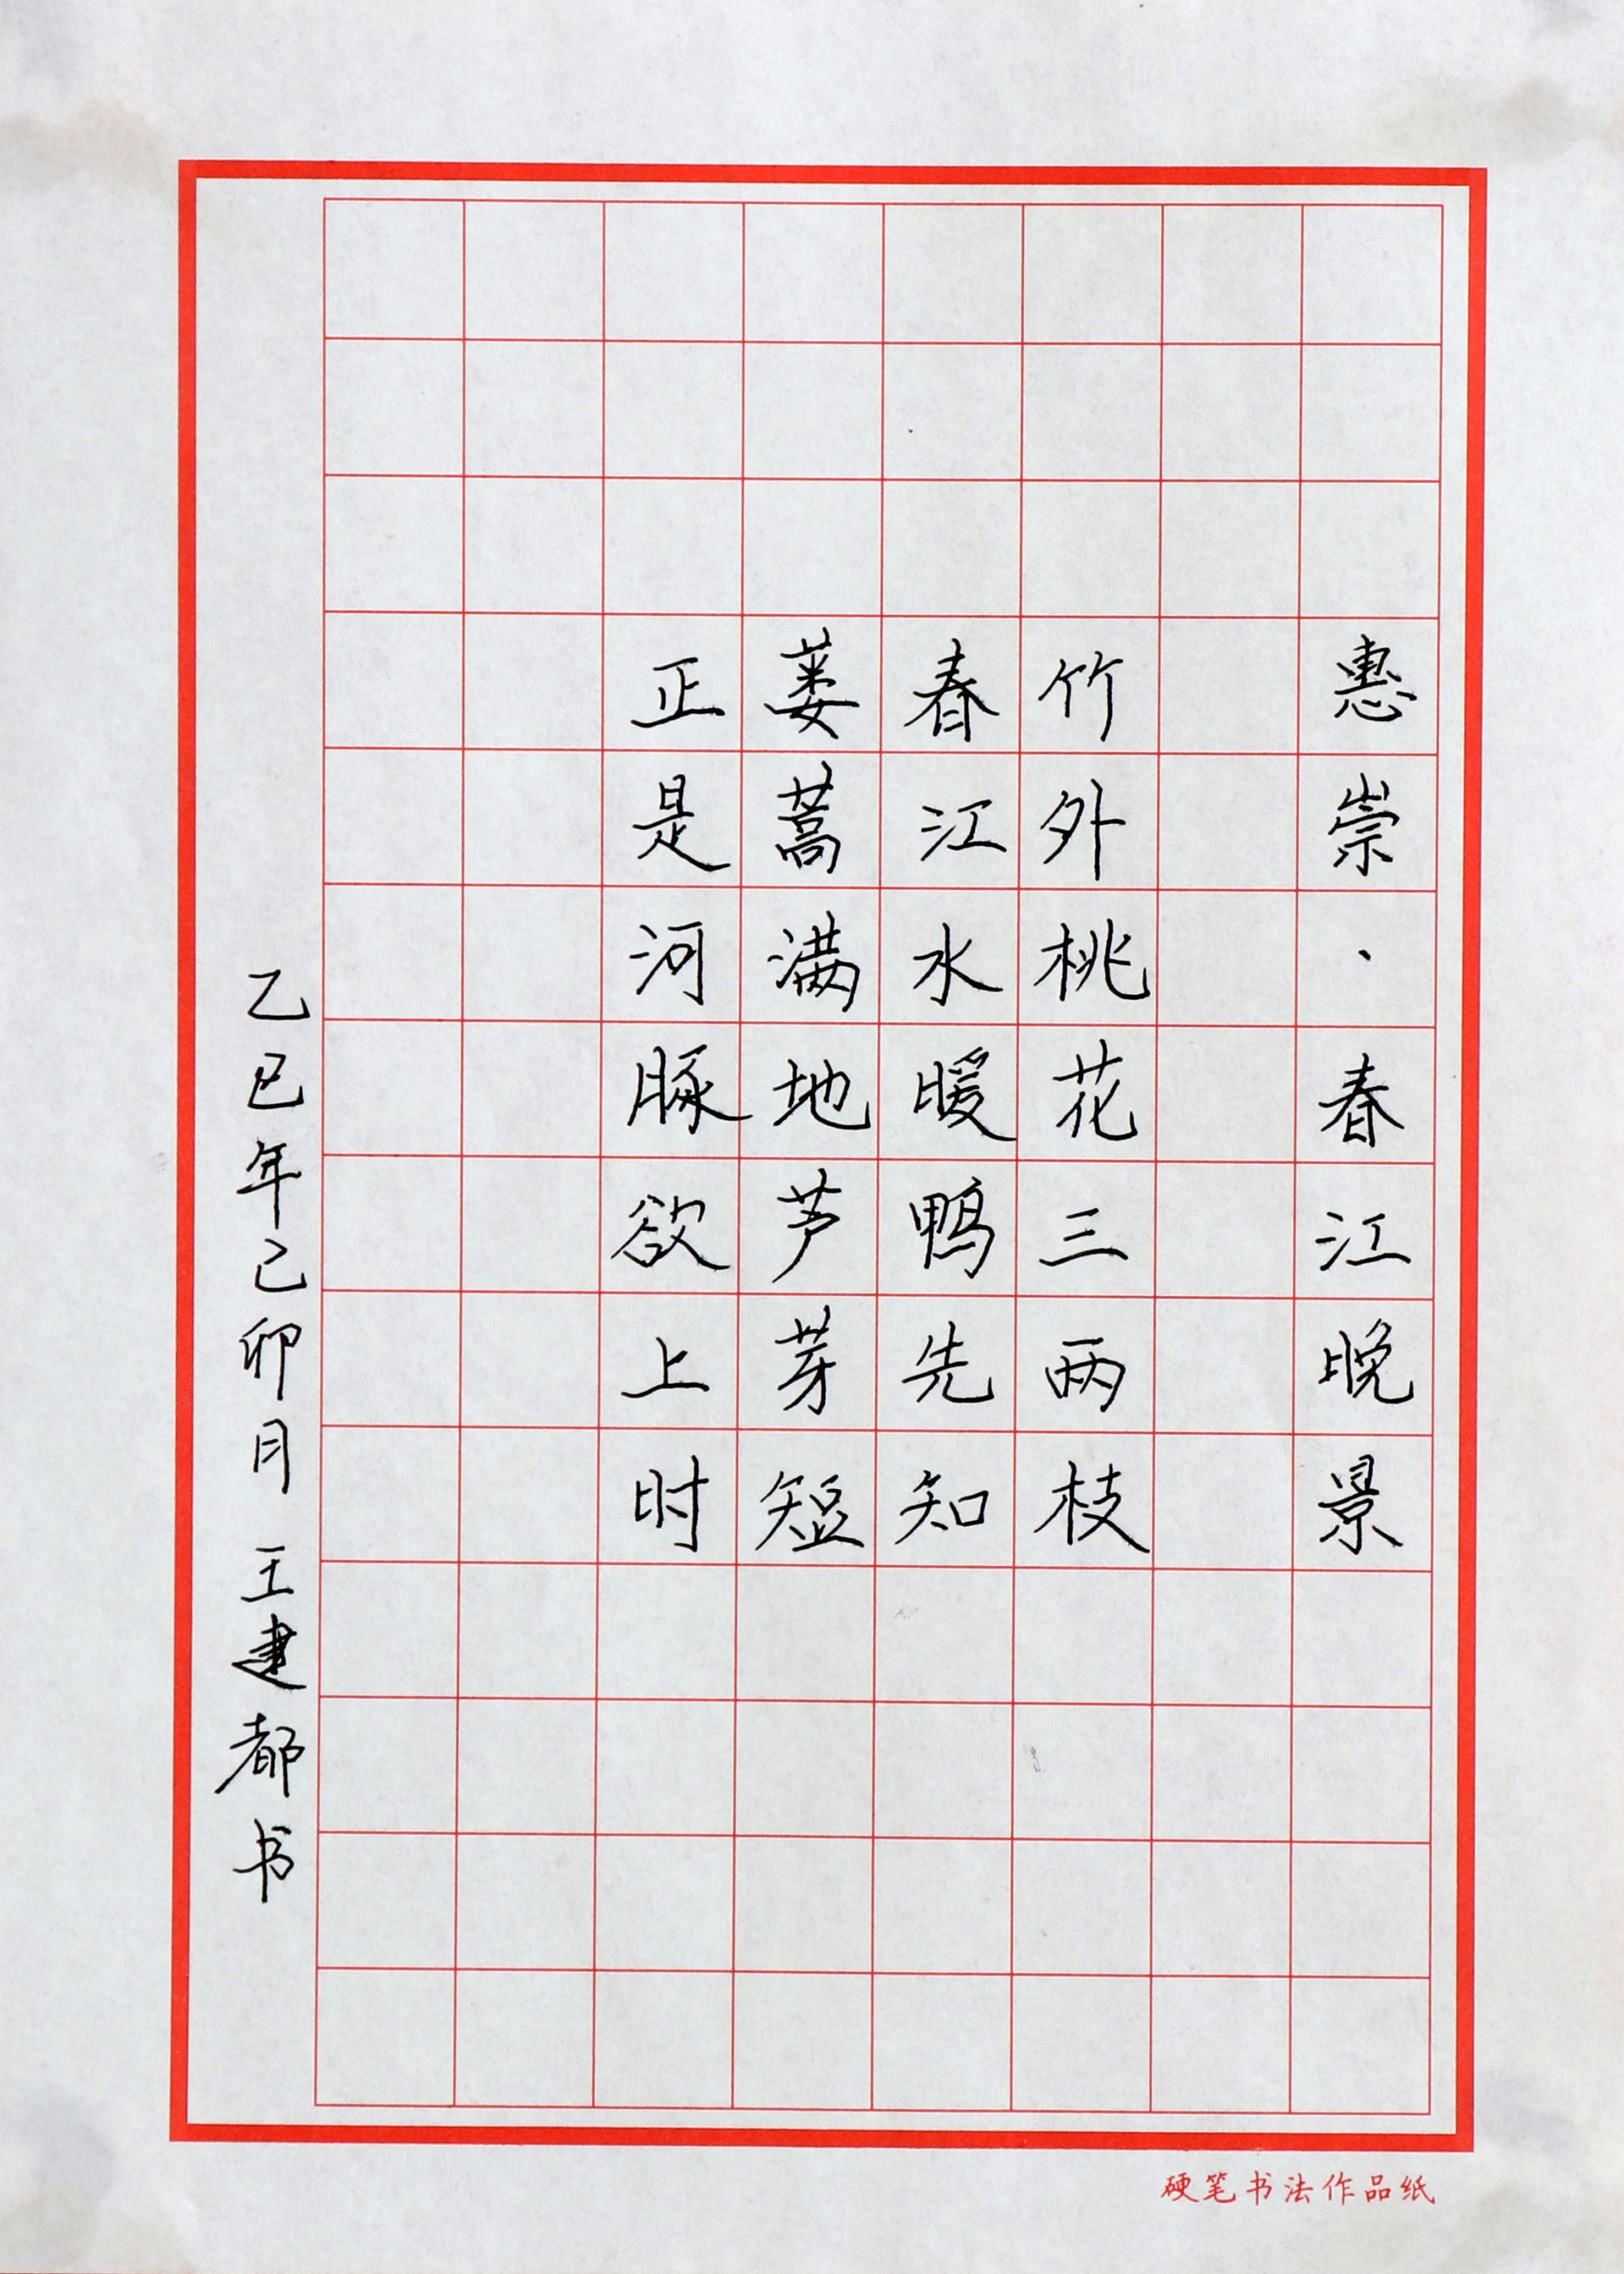 惠崇·春江晚景
竹外桃花三两枝
春江水暖鸭先知
蒌蒿满地芦芽短
正是河豚欲上时
乙巳年己卯月 王建都书
硬笔书法作品纸